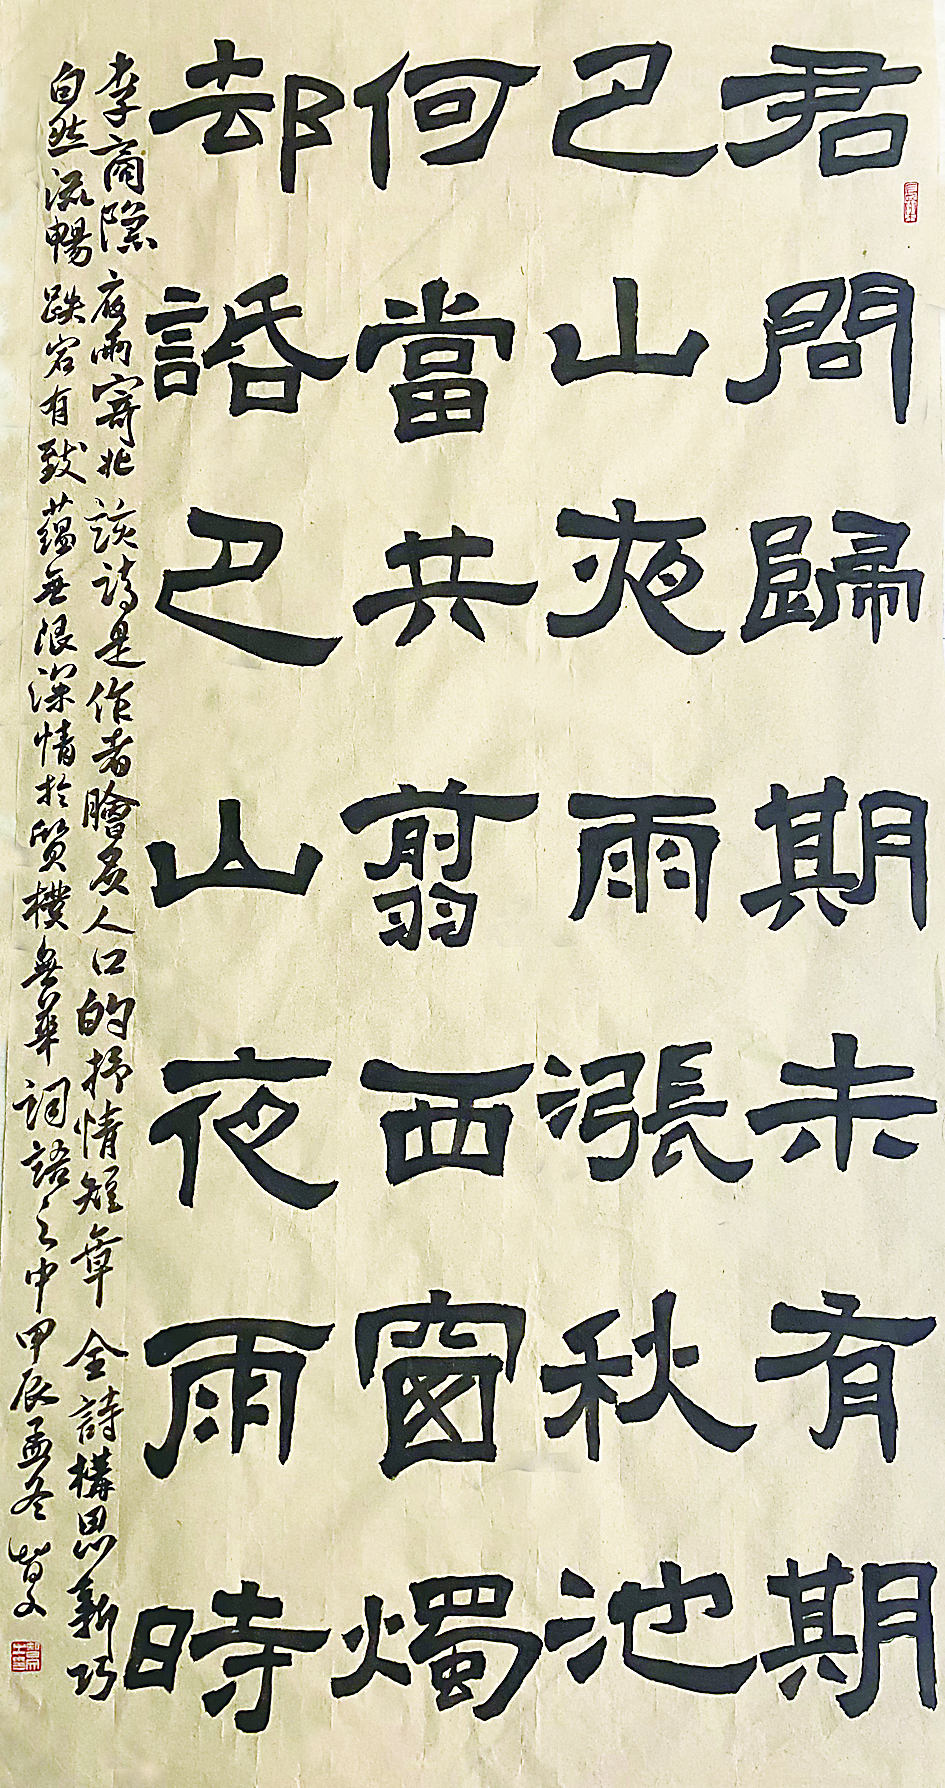 君問歸期未有期
巴山夜雨漲秋池
何當共翦西窗燭
却諙巴山夜雨時
李商隱夜雨寄北 該詩是作者膾炙人口的抒情短章 全詩構思新巧
自然流暢 跌宕有致 蘊無限深情於質樸無華 詞語之中 甲辰孟冬